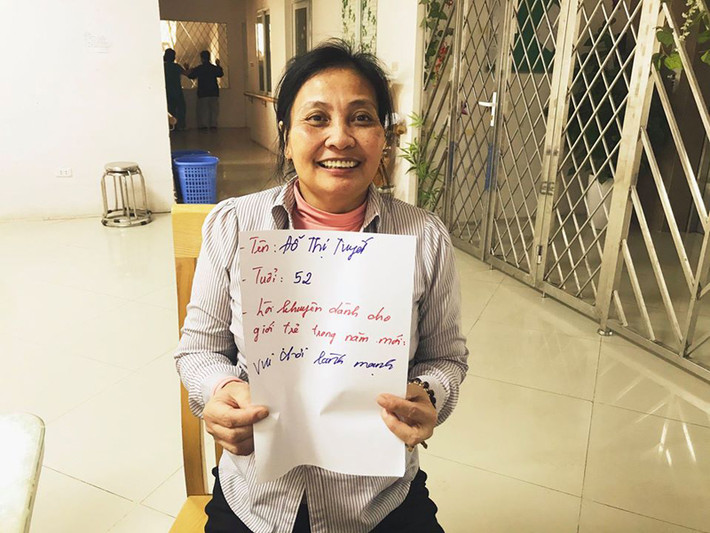 - Tên : Đỗ Thị Tuyết
- Tuổi : 52
- Lời khuyên dành cho
giới trẻ trong năm mới:
Vui chơi lành mạnh